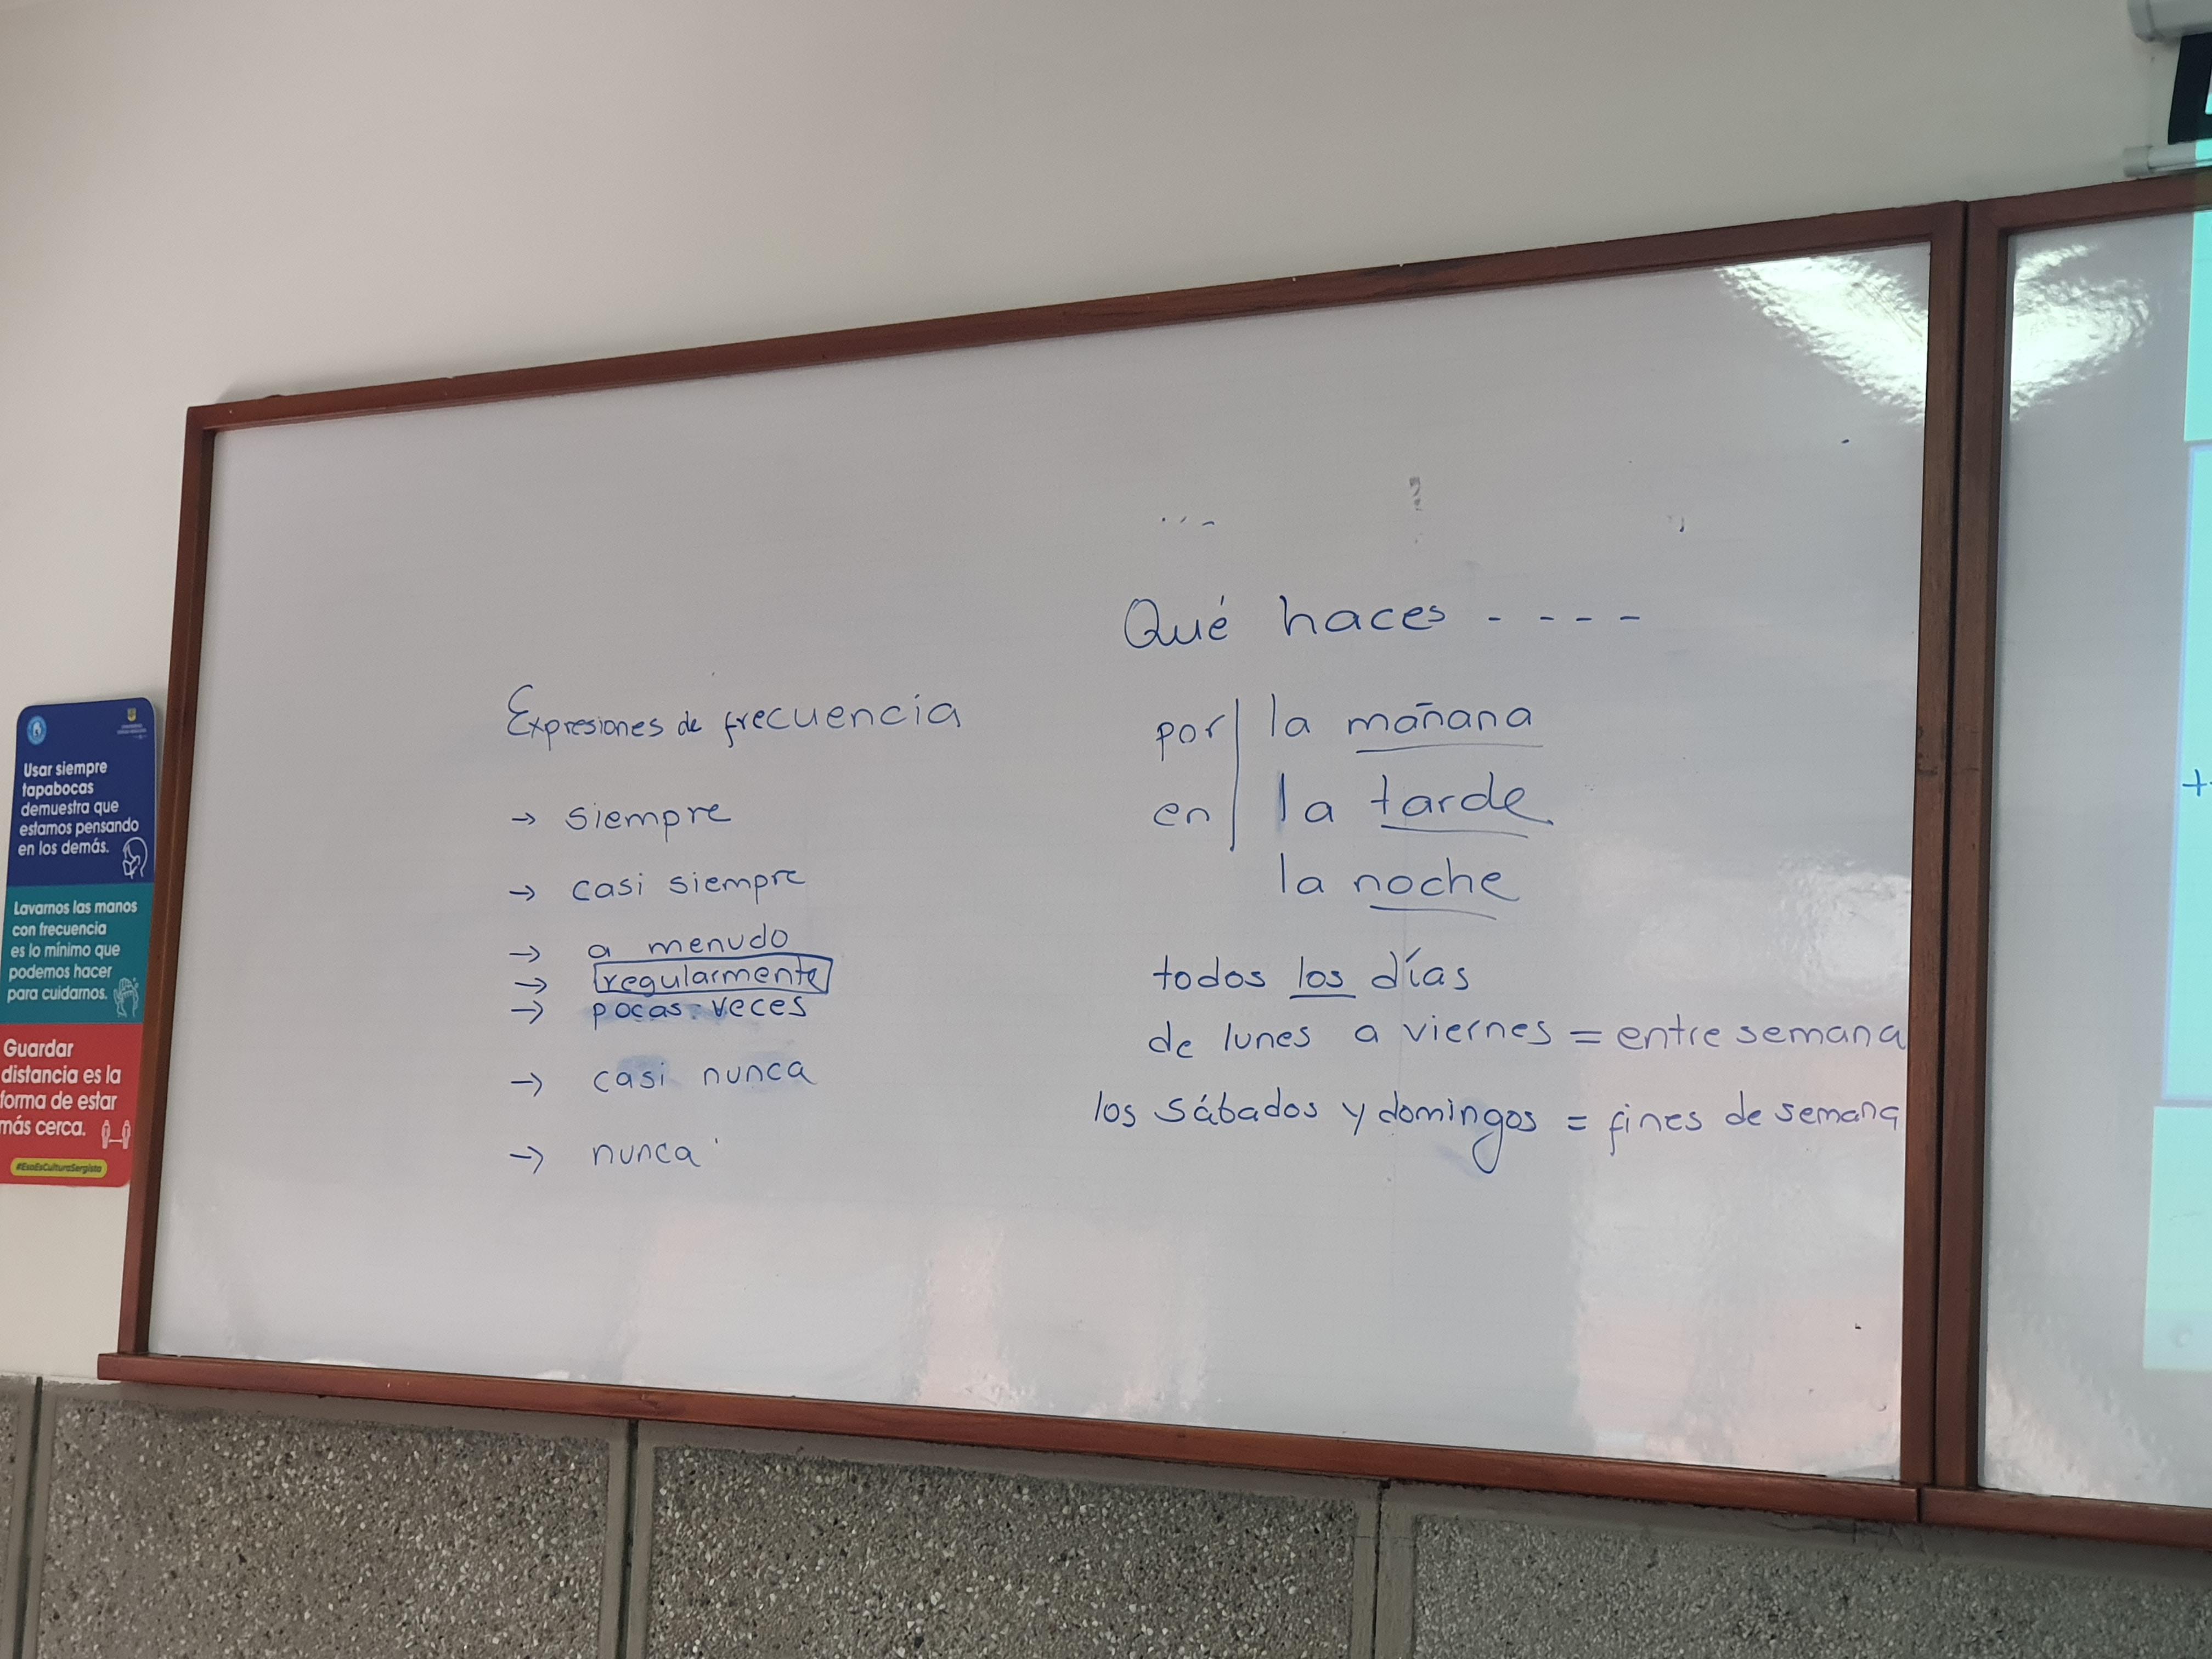 Usar siempre
tapabocas
demuestra que
estamos pensando
en los demás.
Lavarnos las manos
con frecuencia
es lo mínimo que
podemos hacer
para cuidarnos.
Guardar
distancia es la
forma de estar
más cerca.
#EsoEsCulturaSergista
Expresiones de frecuencia
→ siempre
→ casi siempre
→ a menudo
→ regularmente
→ pocas veces
→ casi nunca
→ nunca
Qué haces - - - -
por la mañana
en la tarde
la noche
todos los días
de lunes a viernes = entre semana
los sábados y domingos = fines de semana